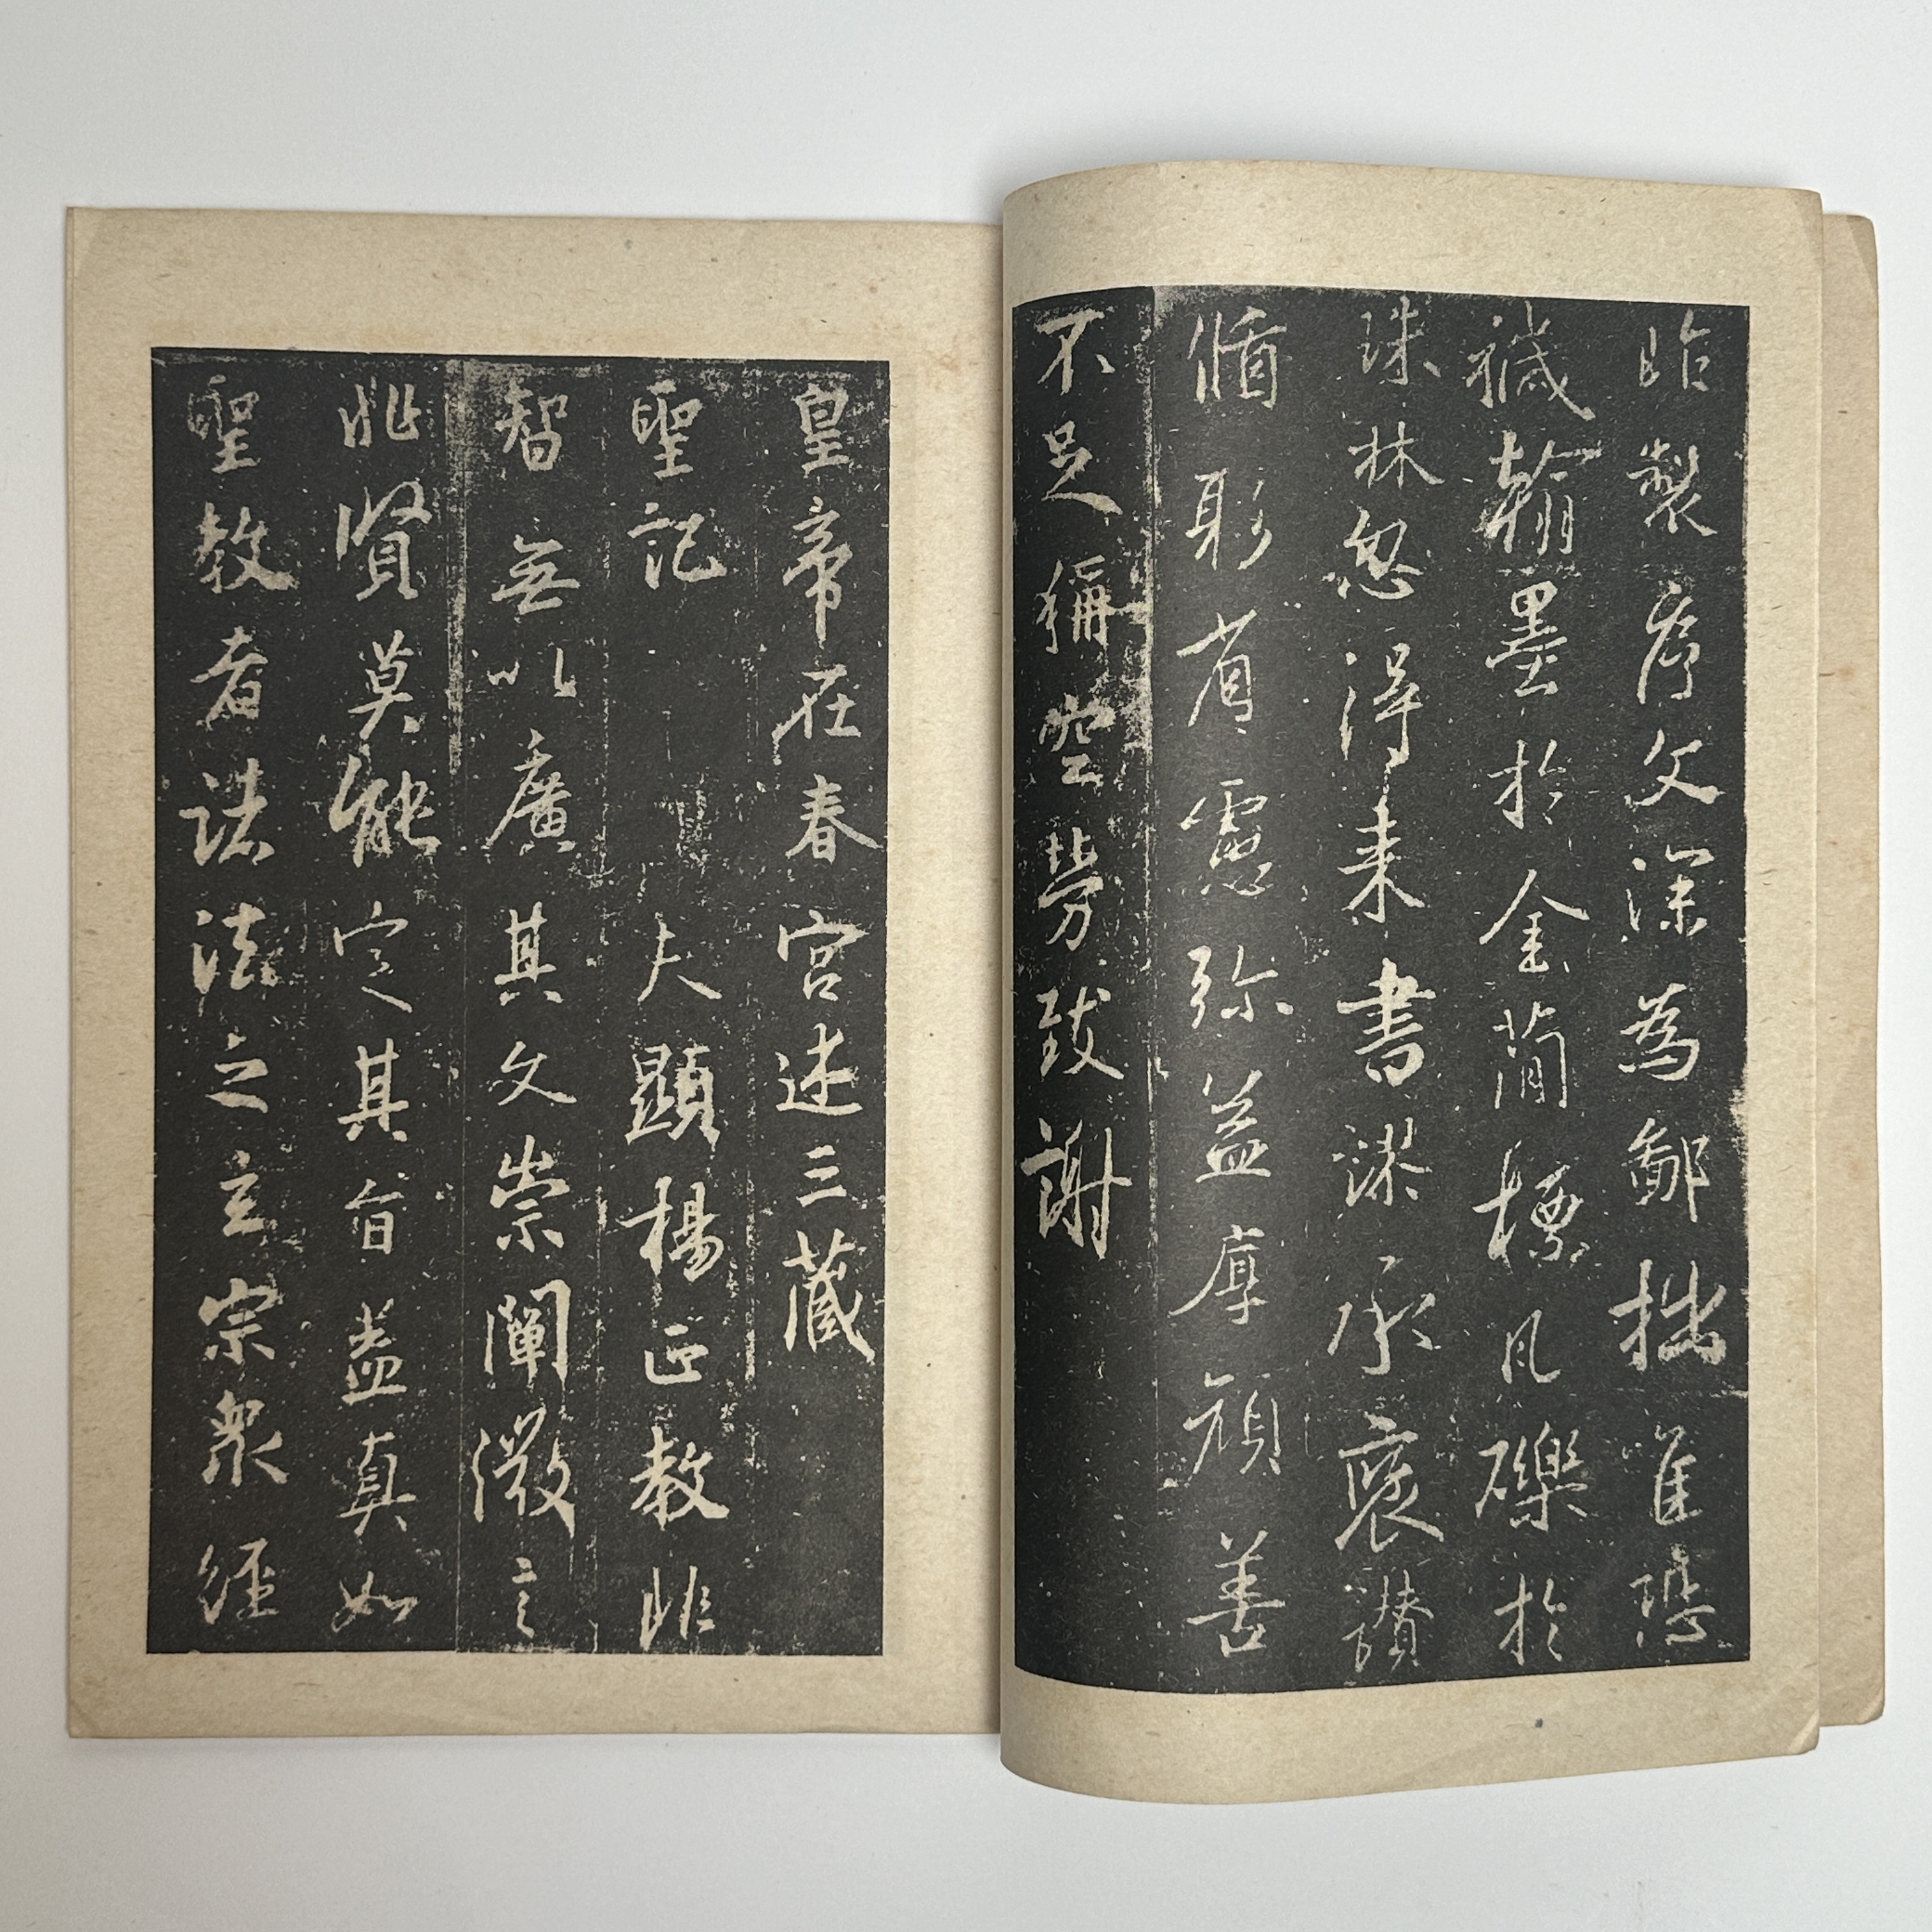 昨製序文深為鄙拙唯恐
穢翰墨於金簡標瓦礫於
珠林忽得来書謬承褒讃
循躬省慮弥益厚顔善
不足稱空勞致謝
皇帝在春宮述三藏
聖記
大顯揚正教非
智無以廣其文崇闡微言
非賢莫能定其旨蓋真如
聖教者諸法之玄宗衆經